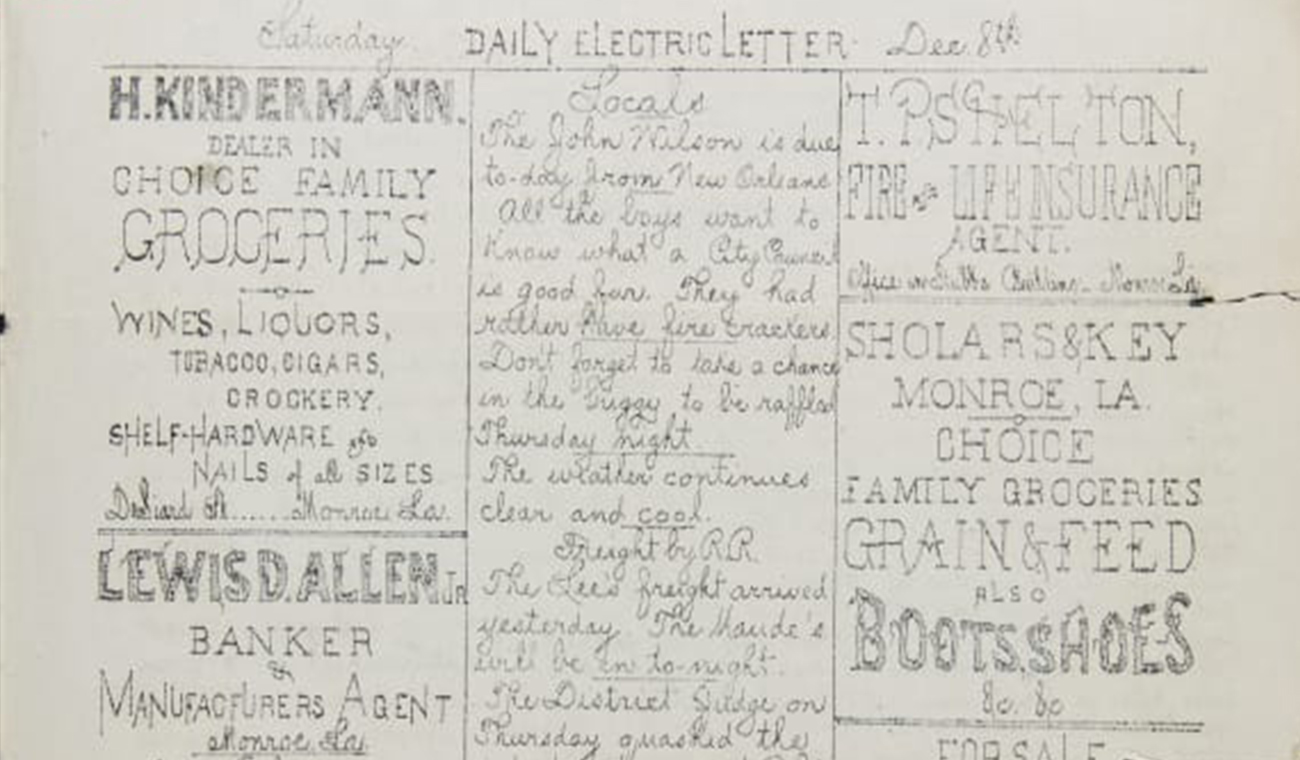 Saturday. DAILY ELECTRIC LETTER. Dec. 8th
H. KINDERMANN.
DEALER IN
CHOICE FAMILY
GROCERIES.
WINES, LIQUORS,
TOBACCO, CIGARS,
CROCKERY,
SHELF-HARDWARE &
NAILS of all SIZES
DeSiard St......Monroe La.
LEWIS D. ALLEN JR
BANKER
&
MANUFACTURERS AGENT
Monroe, La
Locals
The John Wilson is due
to-day from New Orleans
All the boys want to
know what a City Council
is good for. They had
rather have fire crackers
Don't forget to take a chance
in the buggy to be raffled
Thursday night.
The weather continues
clear and cool.
Freight by R.R.
The Lee's freight arrived
yesterday. The Maude's
will be in to-night.
The District Judge on
Thursday quashed the
T. P. SHELTON,
FIRE & LIFE INSURANCE
AGENT.
Office in Stubbs Building. Monroe La.
SHOLARS & KEY
MONROE, LA.
CHOICE
FAMILY GROCERIES
GRAIN & FEED
ALSO
BOOTS, SHOES
&c. &c
FOR SALE